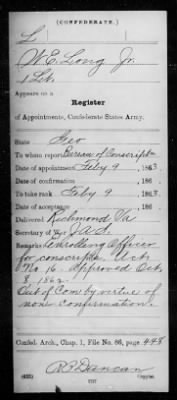 (CONFEDERATE.)
L
W. E. Long Jr.
1 Lt.
Appears on a
Register
of Appointments, Confederate States Army.
State Geo
To whom report Bureau of Conscripts
Date of appointment Feby 9 186 3
Date of confirmation 186
To take rank Feby 9 186 3
Date of acceptance 186
Delivered Richmond Va
Secretary of War J A S
Remarks Enrolling Officer
for conscripts Act
No. 16. Approved Oct
8 1862
Out of Com by virtue of
non confirmation.
Confed. Arch., Chap. 1, File No. 86, page 448
R B Duncan
(635) Copyist.